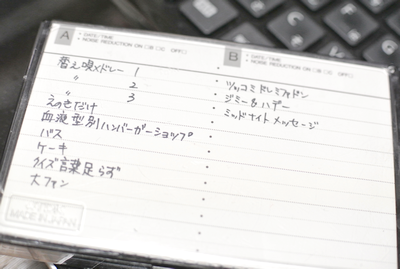 A • DATE/TIME
• NOISE REDUCTION ON(□B □C OFF□)
替え唄メドレー 1
〃 2
〃 3
えのきだけ
血液型別ハンバーガーショップ
バス
ケーキ
クイズ言葉足らず
大ファン
B • DATE/TIME
• NOISE REDUCTION ON(□B □C OFF□)
ツッコミドレミファドン
ジミー&ハデー
ミッドナイトメッセージ
MADE IN JAPAN